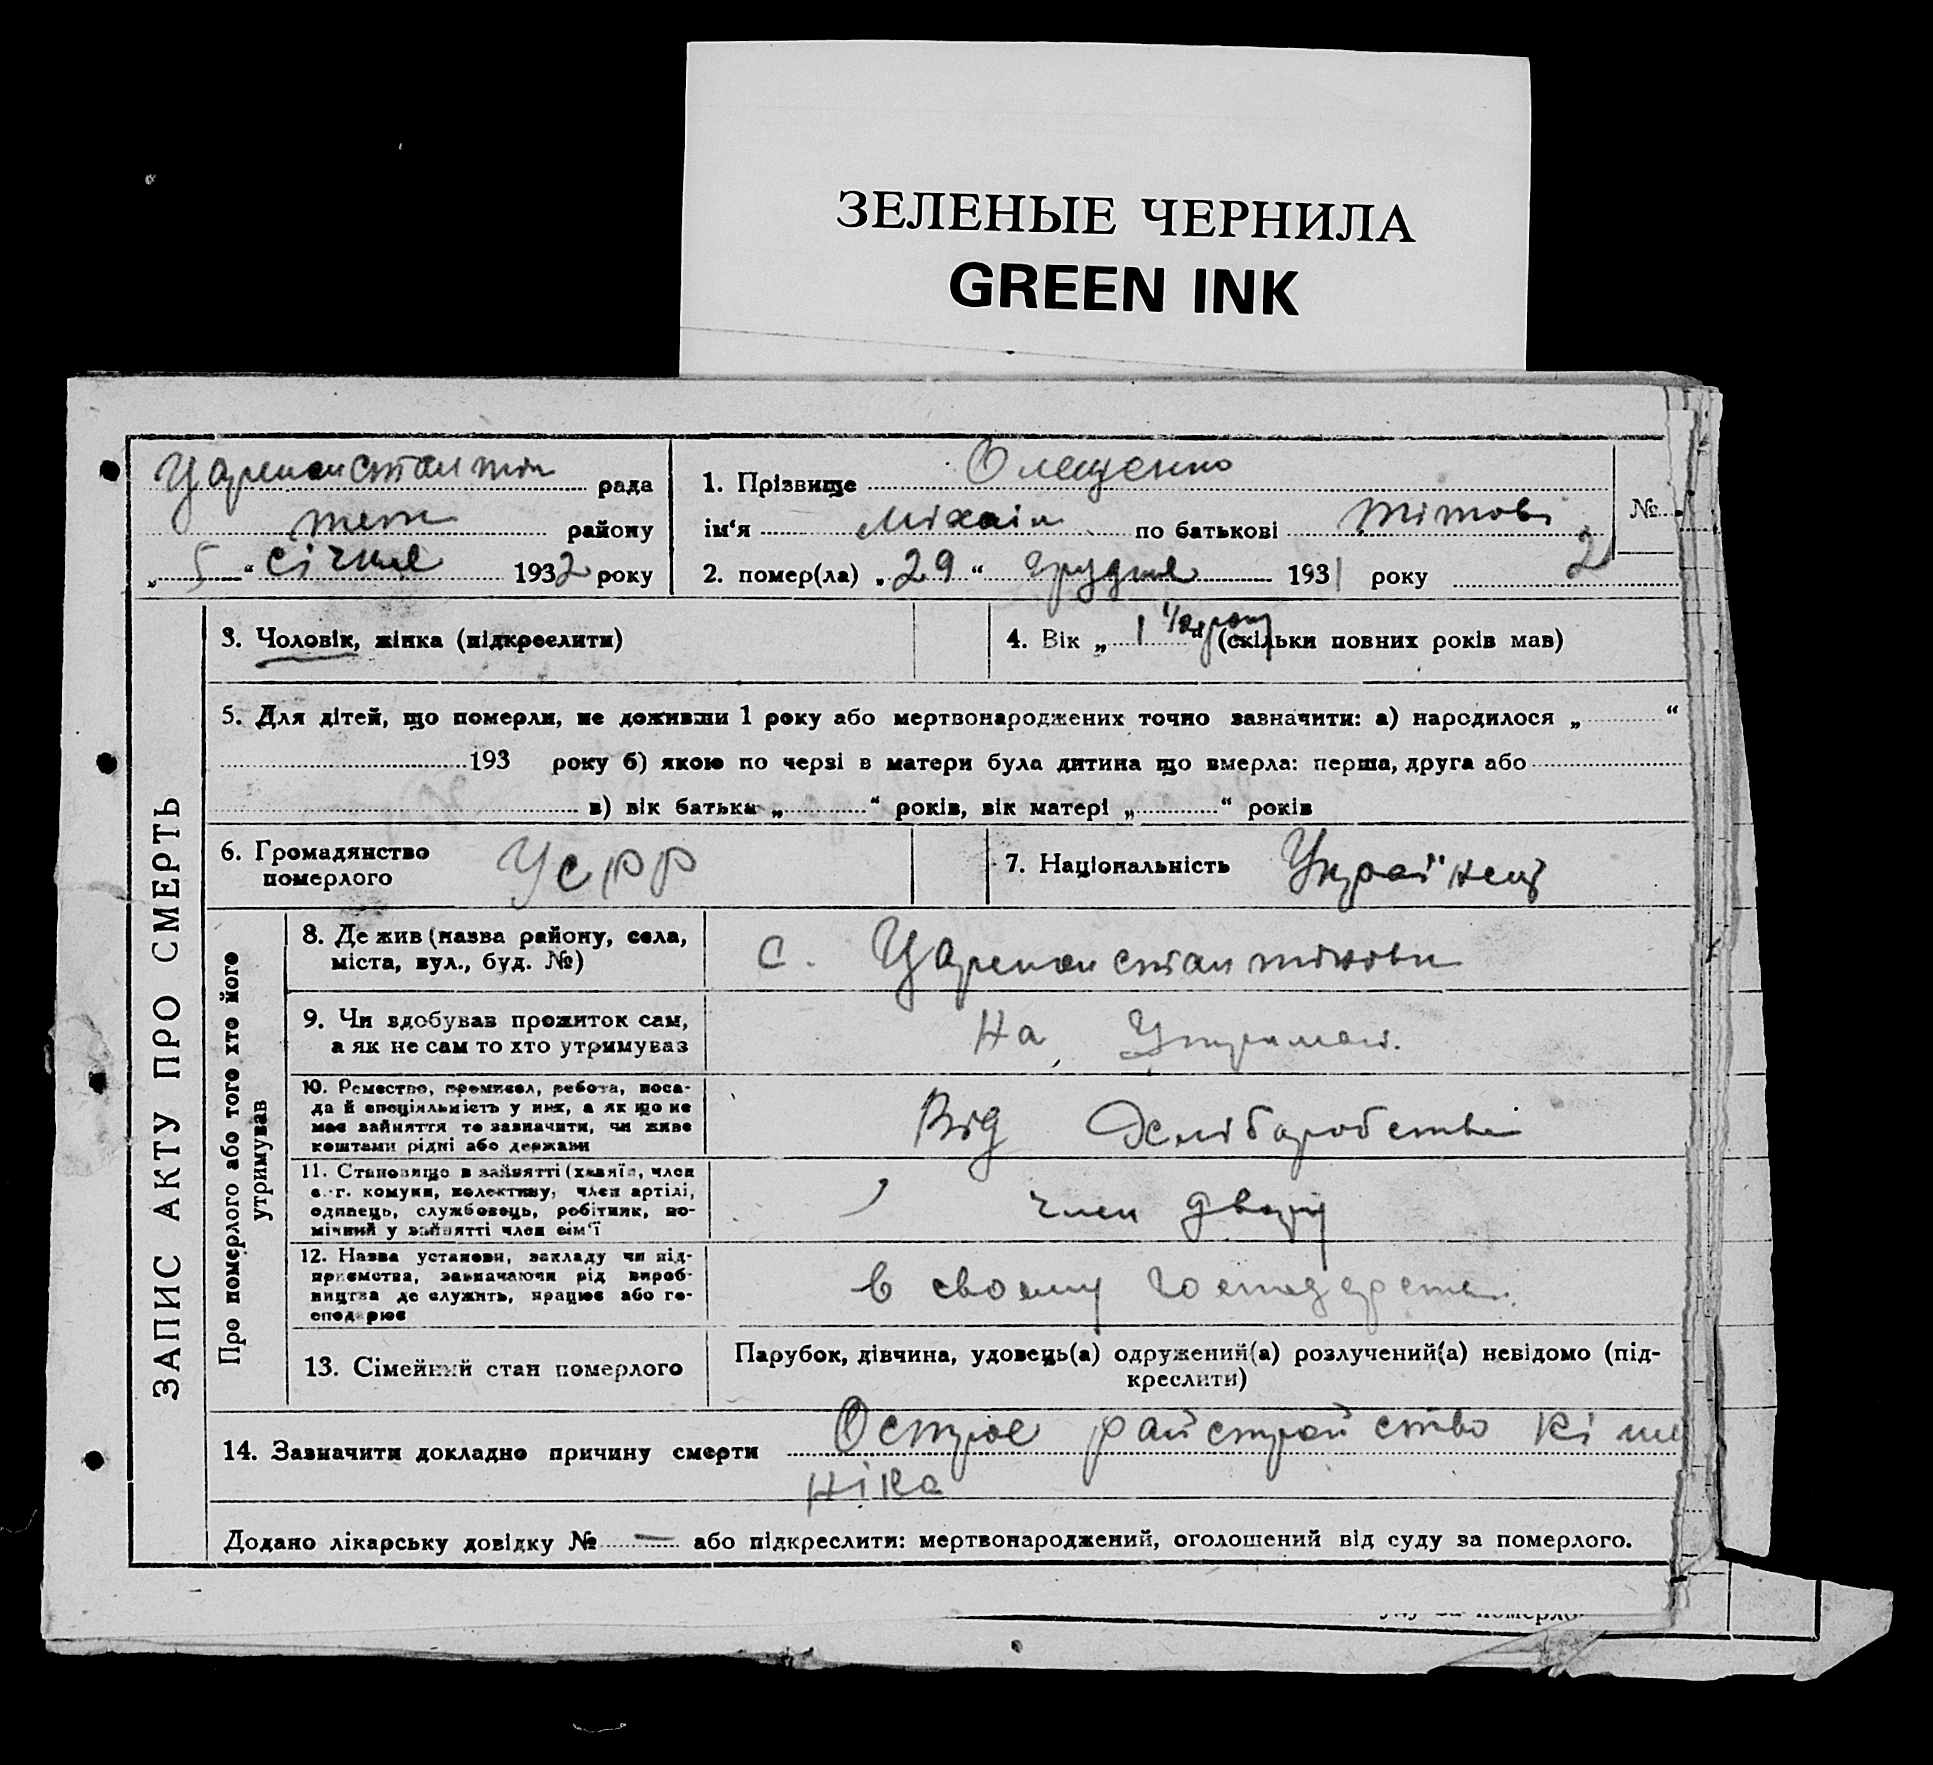 ЗЕЛЕНЫЕ ЧЕРНИЛА
GREEN INK
Цареконстантін рада
району
„ 5 “ січня 1932 року
1. Прізвище Олещенко
ім‘я Міхаіл по батькові Тітові
2. помер(ла) „ 29 “ Грудня 1931 року
№ 2
ЗАПИС АКТУ ПРО СМЕРТЬ
3. Чоловік, жінка (підкреслити)
4. Вік „ 1 1/2 року (скільки повних років мав)
5. Для дітей, що померли, не доживши 1 року або мертвонароджених точно зазначити: а) народилося „ “
193 року б) якою по черзі в матери була дитина що вмерла: перша, друга або
в) вік батька „ “ років, вік матері „ “ років
6. Громадянство
померлого
УСРР
7. Національність Українец
Про померлого або того хто його
утримував
8. Де жив (назва району, села,
міста, вул., буд. №)
с. Цареконстантіновк
9. Чи здобував прожиток сам,
а як не сам то хто утримував
На Утриман.
10. Ремество, промисел, робота, поса-
да й спеціяльність у них, а як що не
має зайняття то зазначити, чи живе
коштами рідні або держави
Від Хліборобства
11. Становище в зайнятті (хазяїн, член
с.-г. комуни, колективу, член артілі,
одинець, службовець, робітник, по-
мічний у зайнятті член сім‘ї
член двору
12. Назва установи, закладу чи під-
приємства, зазначаючи рід вироб-
ництва де служить, працює або го-
сподарює
в своему господарстві
13. Сімейний стан померлого
Парубок, дівчина, удовець(а) одружений(а) розлучений(а) невідомо (під-
креслити)
14. Зазначити докладно причину смерти Острое райстройство Кіше
Ніка
Додано лікарську довідку № — або підкреслити: мертвонароджений, оголошений від суду за померлого.